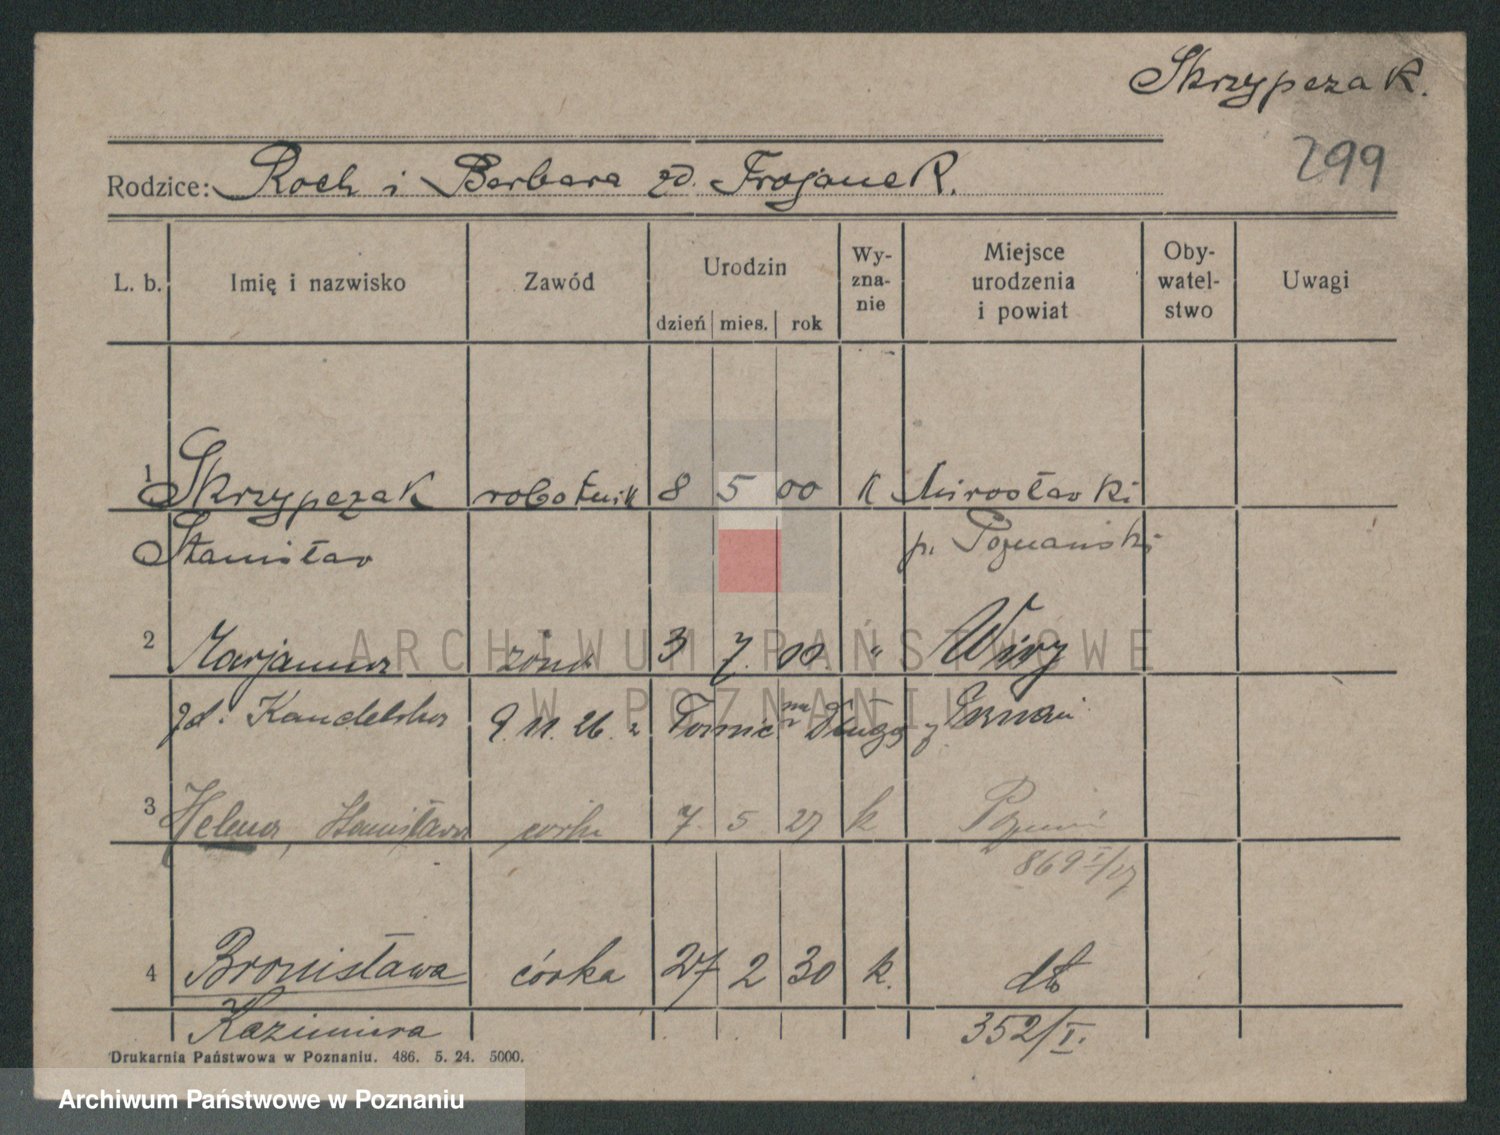 Skrzypczak.
299
Rodzice: Roch i Barbara zd. Frojanek.
L. b. Imię i nazwisko Zawód Urodzin dzień mies. rok Wyznanie Miejsce urodzenia i powiat Obywatelstwo Uwagi
1 Skrzypczak robotnik 8 5 00 k Mirosławki
Stanisław p. Poznański
2 Marjanna żona 3 7. 00 " Wiry
zd. Kandelska 9. 11. 26. z
3 Helena, Stanisława córka 7. 5 27 k Poznań
869 I/27
4 Bronisława córka 27 2 30 k. dto
Kazimiera 352/I.
Drukarnia Państwowa w Poznaniu. 486. 5. 24. 5000.
ARCHIWUM PAŃSTWOWE
W POZNANIU
Archiwum Państwowe w Poznaniu